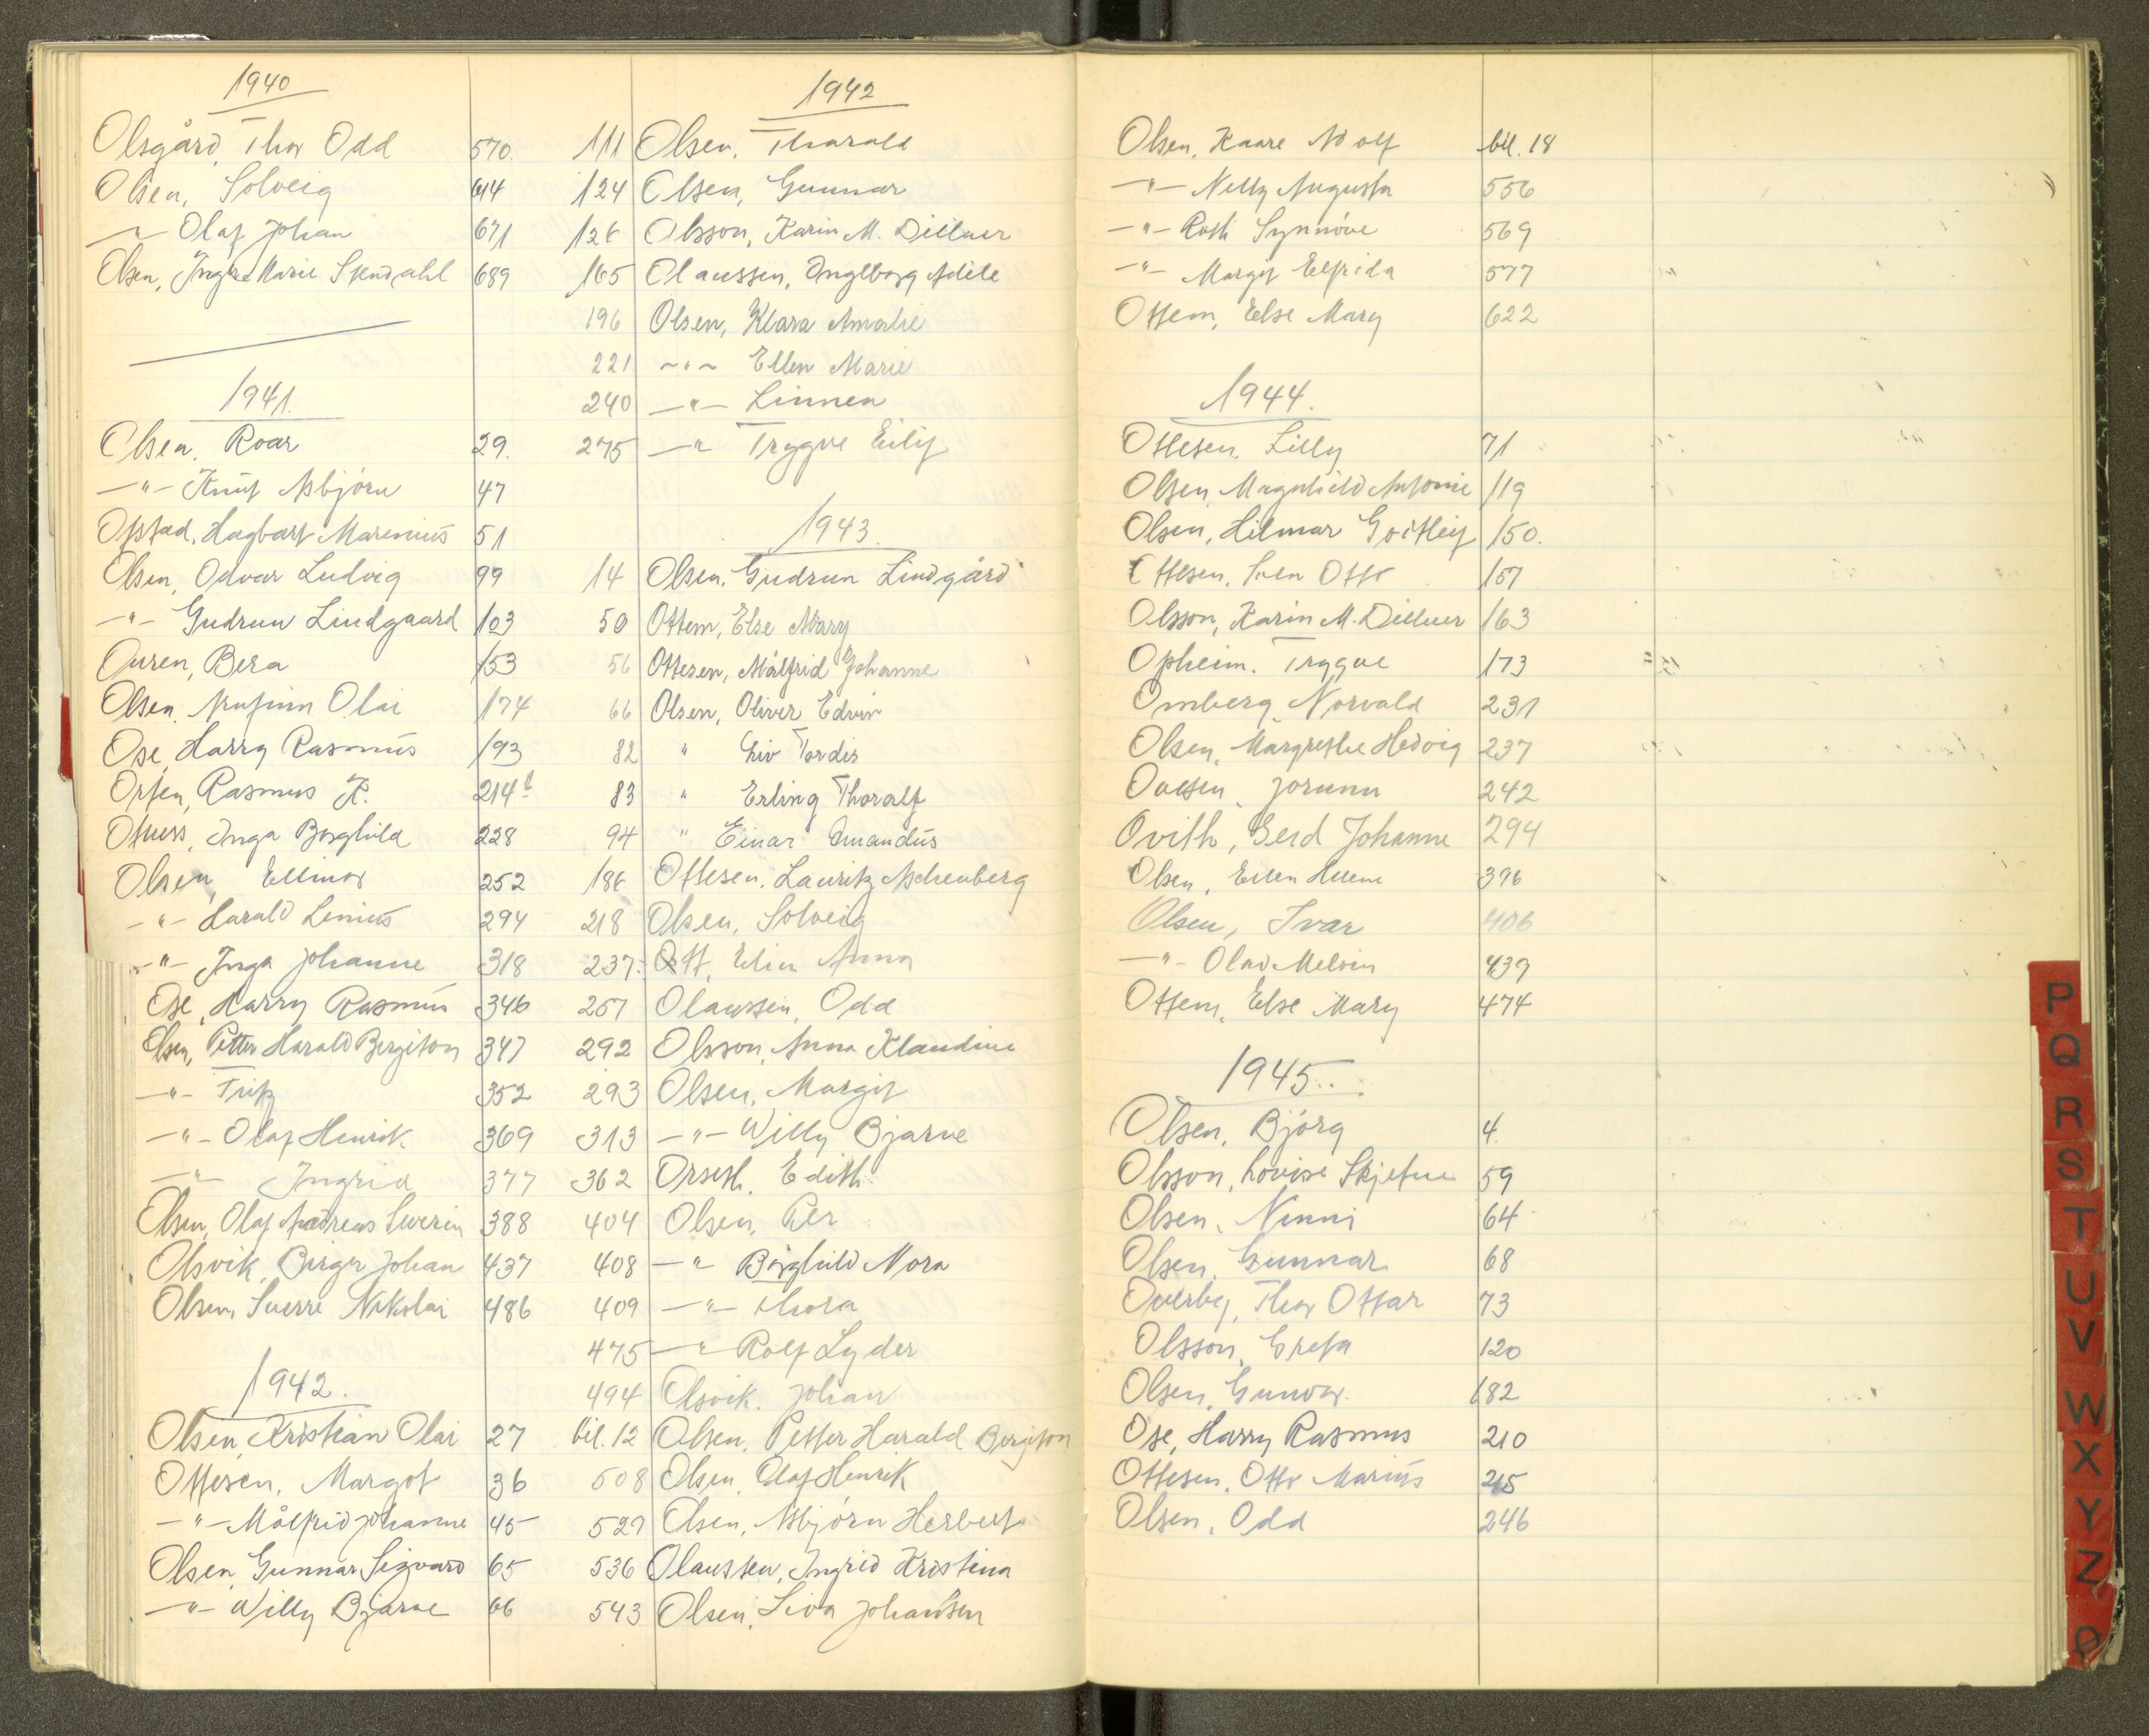 1940
Olsgård, Thor Odd 570.
Olsen, Solveig 614
—"— Olaf Johan 671
Olsen, Inger Marie Skudahl 689
1941.
Olsen, Roar 29.
—"— Knut Asbjørn 47
Opstad, Hagbart Marenius 51
Olsen, Odvar Ludvig 99
—"— Gudrun Lindgaard 103
Ouren, Bera 153
Olsen, Arnfinn Olai 174
Ose, Harry Rasmus 193
Orten, Rasmus K. 214b
Inga Borghild 228
Olsen, Ellinor 252
—"— Harald Lenius 294
—"— Inga Johanne 318
Ose, Harry Rasmus 346
Olsen, Petter Harald Bergiton 347
—"— Fritz 352
—"— Olaf Henrik 369
—"— Ingrid 377
Olsen, Olaf Andreas Severin 388
Olsvik, Birger Johan 437
Olsen, Sverre Nikolai 486
1942.
Olsen, Kristian Olai 27
Ottesen, Margot 36
—"— Målfrid Johanne 45
Olsen, Gunnar Sigvard 65
—"— Willy Bjarne 66
1942
111 Olsen, Tharald
124 Olsen, Gunnar
126 Olsson, Karin M. Dillner
165 Olaussen, Ingeborg Adele
196 Olsen, Klara Amalie
221 —"— Ellen Marie
240 —"— Linnea
275 —"— Trygve Eilif
1943.
14 Olsen, Gudrun Lindgård
50 Ottem, Else Mary
56 Ottesen, Målfrid Johanne
66 Olsen, Oliver Edvin
82 " Liv Tordis
83 " Erling Thoralf
94 " Einar Amandus
186 Ottesen, Lauritz Aschenberg
218 Olsen, Solveig
237. Ott, Elin Anna
257 Olaussen, Odd
292 Olsson, Anna Klaudine
293 Olsen, Margit
313 —"— Willy Bjarne
362 Orseth, Edith
404 Olsen, Per
408 —"— Borghild Nora
409 —"— Thora
475 —"— Rolf Lyder
494 Olsvik, Johan
bil. 12 Olsen, Petter Harald Bergiton
508 Olsen, Olaf Henrik
529 Olsen, Asbjørn Herbert
536 Olaussen, Ingrid Kristina
543 Olsen, Liva Johansen
Olsen, Kaare Adolf bil. 18
—"— Nelly Augusta 556
—"— Ruth Synnöve 569
—"— Margit Elfrida 577
Ottem, Else Mary 622
1944.
Ottesen, Lilly 71
Olsen, Magnhild Antonie 119
Olsen, Hilmar Gottleif 150.
Ottesen, Sven Otto 157
Olsson, Karin M. Dillner 163
Opheim, Trygve 173
Omberg, Norvald 231
Olsen, Margrethe Hedvig 237
Ovesen, Jorunn 242
Ovith, Gerd Johanne 294
Olsen, Ellen Helene 396
Olsen, Ivar 406
—"— Olav Melvin 439
Ottem, Else Mary 474
1945.
Olsen, Bjørg 4.
Olsson, Lovise Skjetne 59
Olsen, Ninni 64
Olsen, Gunnar 68
Overby, Thor Ottar 73
Olsson, Greta 120
Olsen, Gunvor 182
Ose, Harry Rasmus 210
Ottesen, Otto Marius 215
Olsen, Odd 246
P
Q
R
S
T
U
V
W
X
Y
Z
Ø